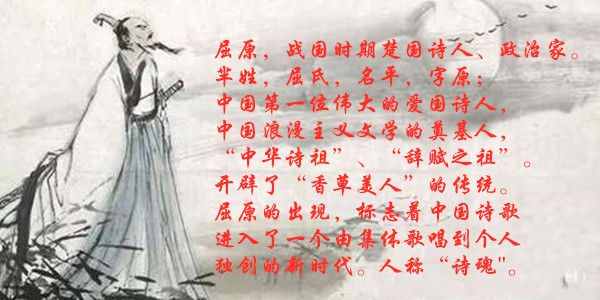 屈原，战国时期楚国诗人、政治家。
芈姓，屈氏，名平，字原；
中国第一位伟大的爱国诗人，
中国浪漫主义文学的奠基人，
“中华诗祖”、“辞赋之祖”。
开辟了“香草美人”的传统。
屈原的出现，标志着中国诗歌
进入了一个由集体歌唱到个人
独创的新时代。人称“诗魂"。